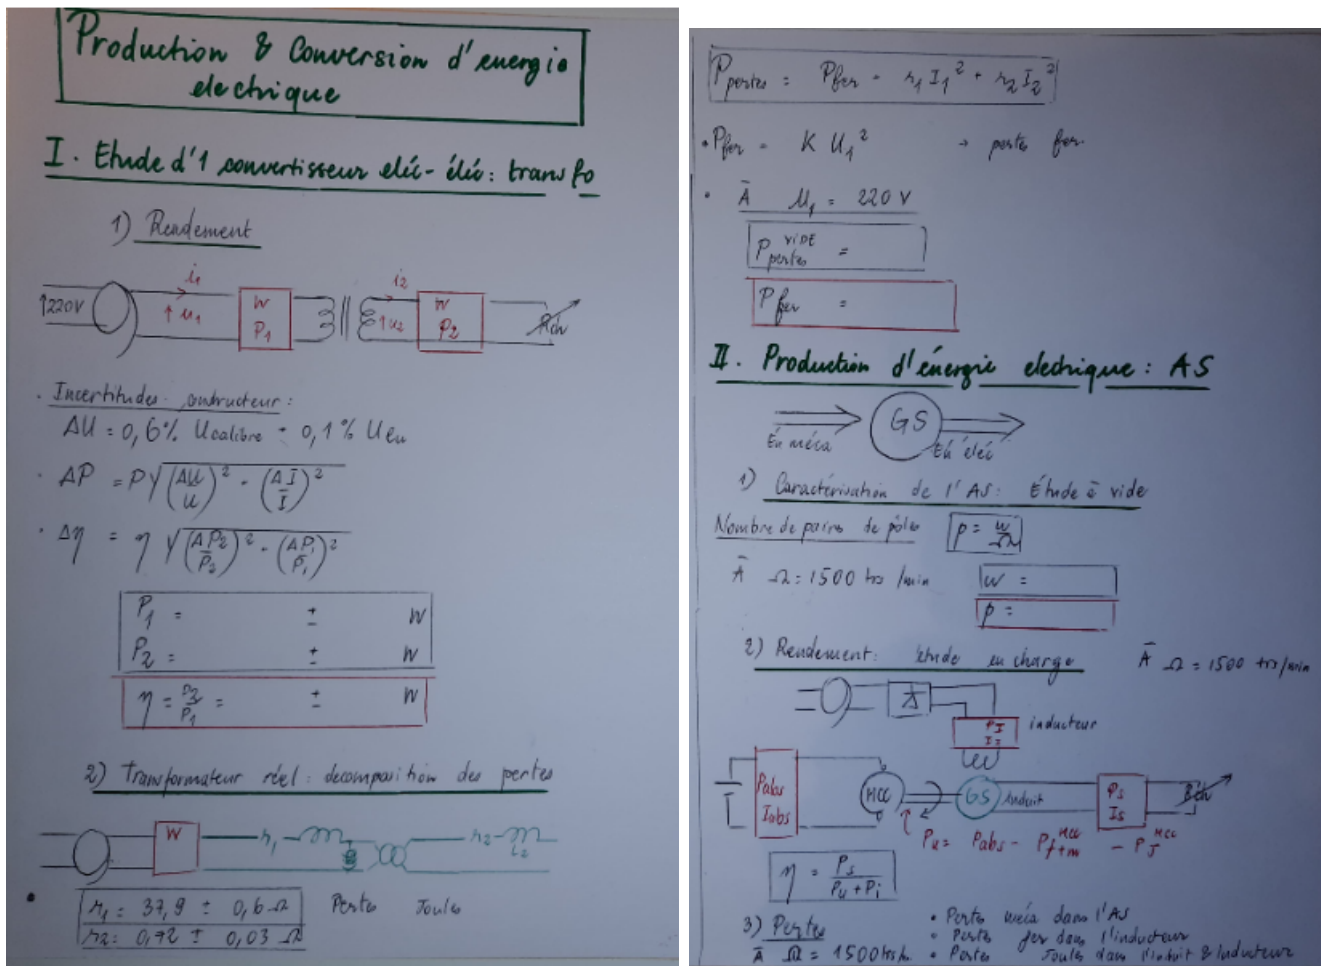 Production & Conversion d'énergie
electrique
I. Etude d'1 convertisseur eléc-éléc: transfo
1) Rendement
220V
i1
u1
W
P1
i2
u2
W
P2
Rch
Incertitudes constructeur:
ΔU = 0,6% Ucalibre + 0,1% Ulu
ΔP = P√((ΔU/U)² + (ΔI/I)²)
Δη = η√((ΔP2/P2)² + (ΔP1/P1)²)
P1 = ± W
P2 = ± W
η = P2/P1 = ± W
2) Transformateur réel: decomposition des pertes
W
r1
r2
r1 = 37,9 ± 0,6 Ω Pertes Joules
r2 = 0,72 ± 0,03 Ω
Ppertes = Pfer + r1 I1² + r2 I2²
• Pfer = K U1² → pertes fer
• À U1 = 220 V
P pertes VIDE =
P fer =
II. Production d'énergie electrique: AS
En méca
GS
En éléc
1) Caractérisation de l'AS: Étude à vide
Nombre de paires de pôles p = ω/Ω
À Ω = 1500 trs/min
ω =
p =
2) Rendement: étude en charge À Ω = 1500 trs/min
inducteur
Pabs
Iabs
MCC
GS induit
Ps
Is
Rch
Pu = Pabs - Pf+m MCC - PJ MCC
η = Ps/(Pu + Pi)
3) Pertes
À Ω = 1500 trs/m
• Pertes méca dans l'AS
• Pertes fer dans l'inducteur
• Pertes Joules dans l'induit & inducteur